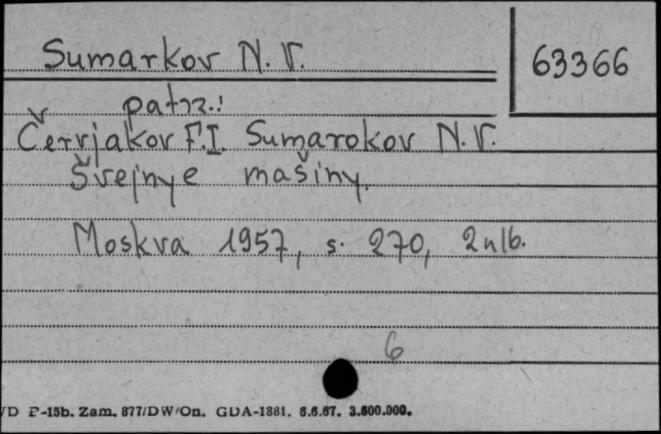 Sumarkov N.V.
63366
patrz:
Červjakov F.I. Sumarokov N.V.
Švejnye mašiny.
Moskva 1957, s. 270, 2 nlb.
6
/D P-15b. Zam. 877/DW/On. GDA-1881. 6.6.67. 3.600.000.